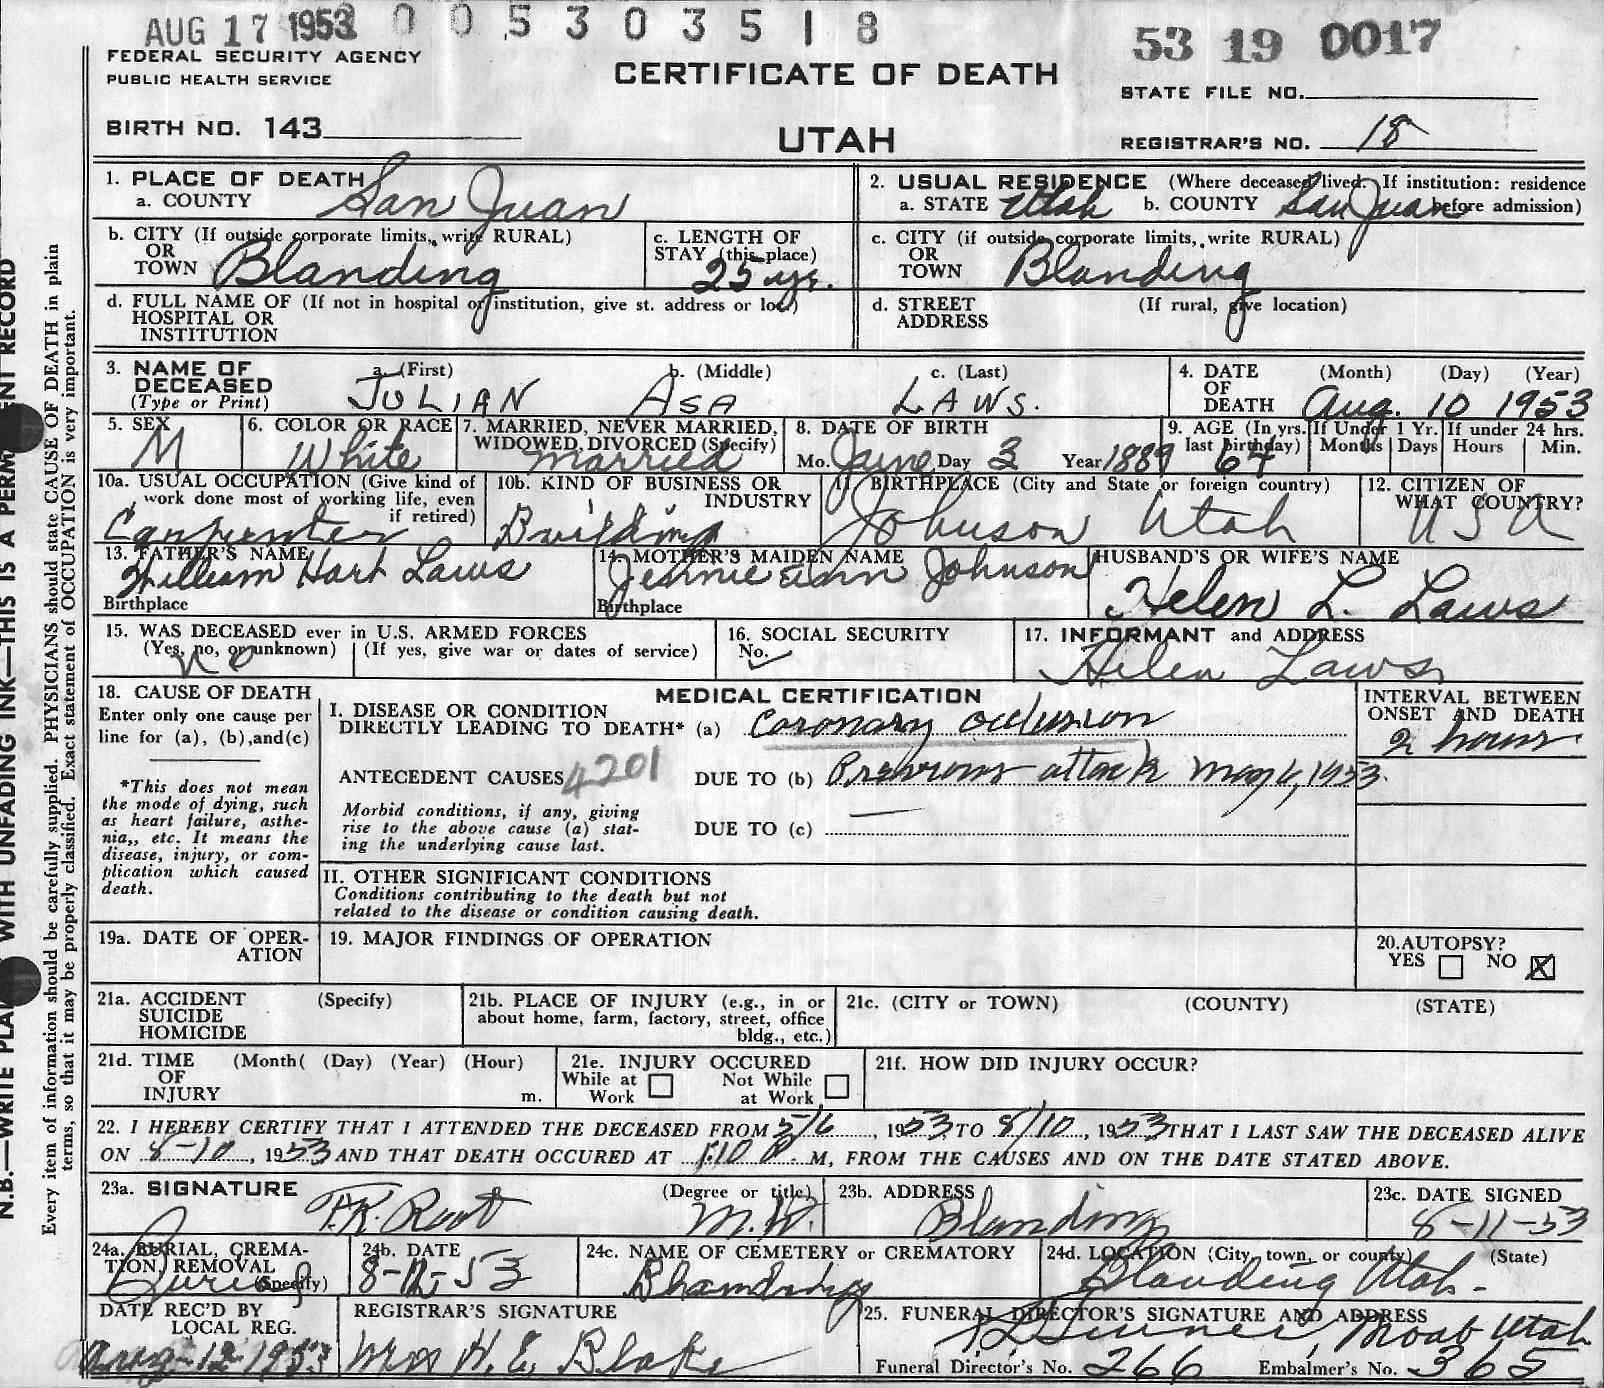 AUG 17 1953 0 0 5 3 0 3 5 1 8
53 19 0017
FEDERAL SECURITY AGENCY
PUBLIC HEALTH SERVICE
CERTIFICATE OF DEATH
STATE FILE NO.
BIRTH NO. 143
UTAH
REGISTRAR'S NO. 18
1. PLACE OF DEATH
a. COUNTY San Juan
2. USUAL RESIDENCE (Where deceased lived. If institution: residence before admission)
a. STATE Utah b. COUNTY San Juan
b. CITY (If outside corporate limits, write RURAL)
OR
TOWN Blanding
c. LENGTH OF
STAY (this place)
25 yr.
c. CITY (if outside corporate limits, write RURAL)
OR
TOWN Blanding
d. FULL NAME OF (If not in hospital or institution, give st. address or loc.)
HOSPITAL OR
INSTITUTION
d. STREET
ADDRESS
(If rural, give location)
3. NAME OF
DECEASED
(Type or Print)
a. (First) b. (Middle) c. (Last)
JULIAN ASA LAWS.
4. DATE
OF
DEATH
(Month) (Day) (Year)
Aug. 10 1953
5. SEX
M
6. COLOR OR RACE
White
7. MARRIED, NEVER MARRIED,
WIDOWED, DIVORCED (Specify)
Married
8. DATE OF BIRTH
Mo. June Day 3 Year 1889
9. AGE (In yrs.
last birthday)
64
If Under 1 Yr.
Months Days
If under 24 hrs.
Hours Min.
10a. USUAL OCCUPATION (Give kind of
work done most of working life, even
if retired)
Carpenter
10b. KIND OF BUSINESS OR
INDUSTRY
Building
11. BIRTHPLACE (City and State or foreign country)
Johnson Utah
12. CITIZEN OF
WHAT COUNTRY?
USA
13. FATHER'S NAME
William Hart Laws
Birthplace
14. MOTHER'S MAIDEN NAME
Jennie Ann Johnson
Birthplace
HUSBAND'S OR WIFE'S NAME
Helen L. Laws
15. WAS DECEASED ever in U.S. ARMED FORCES
(Yes, no, or unknown) (If yes, give war or dates of service)
no
16. SOCIAL SECURITY
No.
17. INFORMANT and ADDRESS
Helen Laws
18. CAUSE OF DEATH
Enter only one cause per
line for (a), (b),and(c)
*This does not mean
the mode of dying, such
as heart failure, asthe-
nia,, etc. It means the
disease, injury, or com-
plication which caused
death.
MEDICAL CERTIFICATION
I. DISEASE OR CONDITION
DIRECTLY LEADING TO DEATH* (a) Coronary occlusion
INTERVAL BETWEEN
ONSET AND DEATH
2 hours
ANTECEDENT CAUSES 4201 DUE TO (b) Previous attack May 6, 1953.
Morbid conditions, if any, giving
rise to the above cause (a) stat-
ing the underlying cause last.
DUE TO (c)
II. OTHER SIGNIFICANT CONDITIONS
Conditions contributing to the death but not
related to the disease or condition causing death.
19a. DATE OF OPER-
ATION
19. MAJOR FINDINGS OF OPERATION
20.AUTOPSY?
YES NO X
21a. ACCIDENT (Specify)
SUICIDE
HOMICIDE
21b. PLACE OF INJURY (e.g., in or
about home, farm, factory, street, office
bldg., etc.)
21c. (CITY or TOWN) (COUNTY) (STATE)
21d. TIME (Month( (Day) (Year) (Hour)
OF
INJURY m.
21e. INJURY OCCURED
While at Work Not While at Work
21f. HOW DID INJURY OCCUR?
22. I HEREBY CERTIFY THAT I ATTENDED THE DECEASED FROM 5/6, 1953, TO 8/10, 1953 THAT I LAST SAW THE DECEASED ALIVE
ON 8-10, 1953 AND THAT DEATH OCCURED AT 1:10 P. M, FROM THE CAUSES AND ON THE DATE STATED ABOVE.
23a. SIGNATURE (Degree or title)
M.D.
23b. ADDRESS
Blanding
23c. DATE SIGNED
8-11-53
24a. BURIAL, CREMA-
TION, REMOVAL
(Specify)
Burial
24b. DATE
8-12-53
24c. NAME OF CEMETERY or CREMATORY
Blanding
24d. LOCATION (City, town, or county) (State)
Blanding Utah.
DATE REC'D BY
LOCAL REG.
Aug-12 1953
REGISTRAR'S SIGNATURE
Mrs H. E. Blake
25. FUNERAL DIRECTOR'S SIGNATURE AND ADDRESS
Moab Utah
Funeral Director's No. 266 Embalmer's No. 365
N.B.—WRITE PLAI WITH UNFADING INK—THIS IS A PERM ENT RECORD
Every item of information should be carefully supplied. PHYSICIANS should state CAUSE OF DEATH in plain
terms, so that it may be properly classified. Exact statement of OCCUPATION is very important.